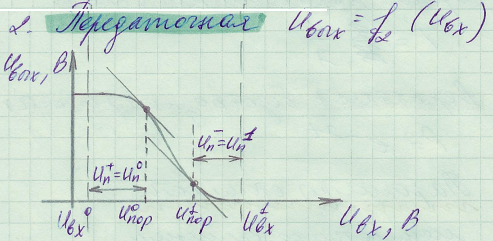 2. Передаточная Uвых = f₂ (Uвх)
Uвых, В
Uп⁻ = Uп¹
Uп⁺ = Uп⁰
Uвх⁰ U⁰пор U¹пор Uвх¹ Uвх, В